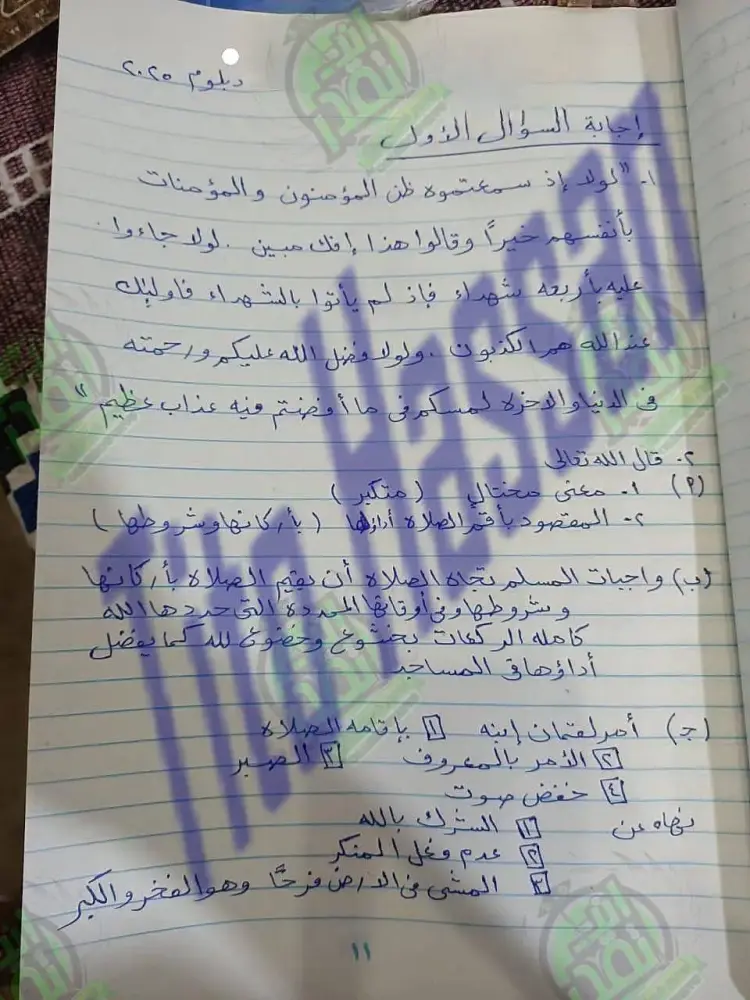 دبلوم ٢٠٢٥
إجابة السؤال الأول
١- "لولا إذ سمعتموه ظن المؤمنون والمؤمنات
بأنفسهم خيراً وقالوا هذا إفك مبين . لولا جاءوا
عليه بأربعه شهداء فإذ لم يأتوا بالشهداء فأولئك
عند الله هم الكذبون . ولولا فضل الله عليكم ورحمته
فى الدنيا والاخره لمسكم فى ما أفضتم فيه عذاب عظيم "
٢- قال الله تعالى
(أ) ١- معنى مختال ( متكبر )
٢- المقصود بأقم الصلاة أداؤها ( بأركانها وشروطها )
(ب) واجبات المسلم تجاه الصلاة أن يقيم الصلاة بأركانها
وشروطها وفى أوقاتها المحددة التى حددها الله
كامله الركعات بخشوع وخضوع لله كما يفضل
أداؤها فى المساجد
(ج) أمر لقمان إبنه ١ بإقامه الصلاة
٢ الأمر بالمعروف ٣ الصبر
٤ خفض صوت
نهاه عن ١ الشرك بالله
٢ عدم وفعل المنكر
٣ المشى فى الارض فرحًا وهو الفخر والكبر
١١
Tito Hassan